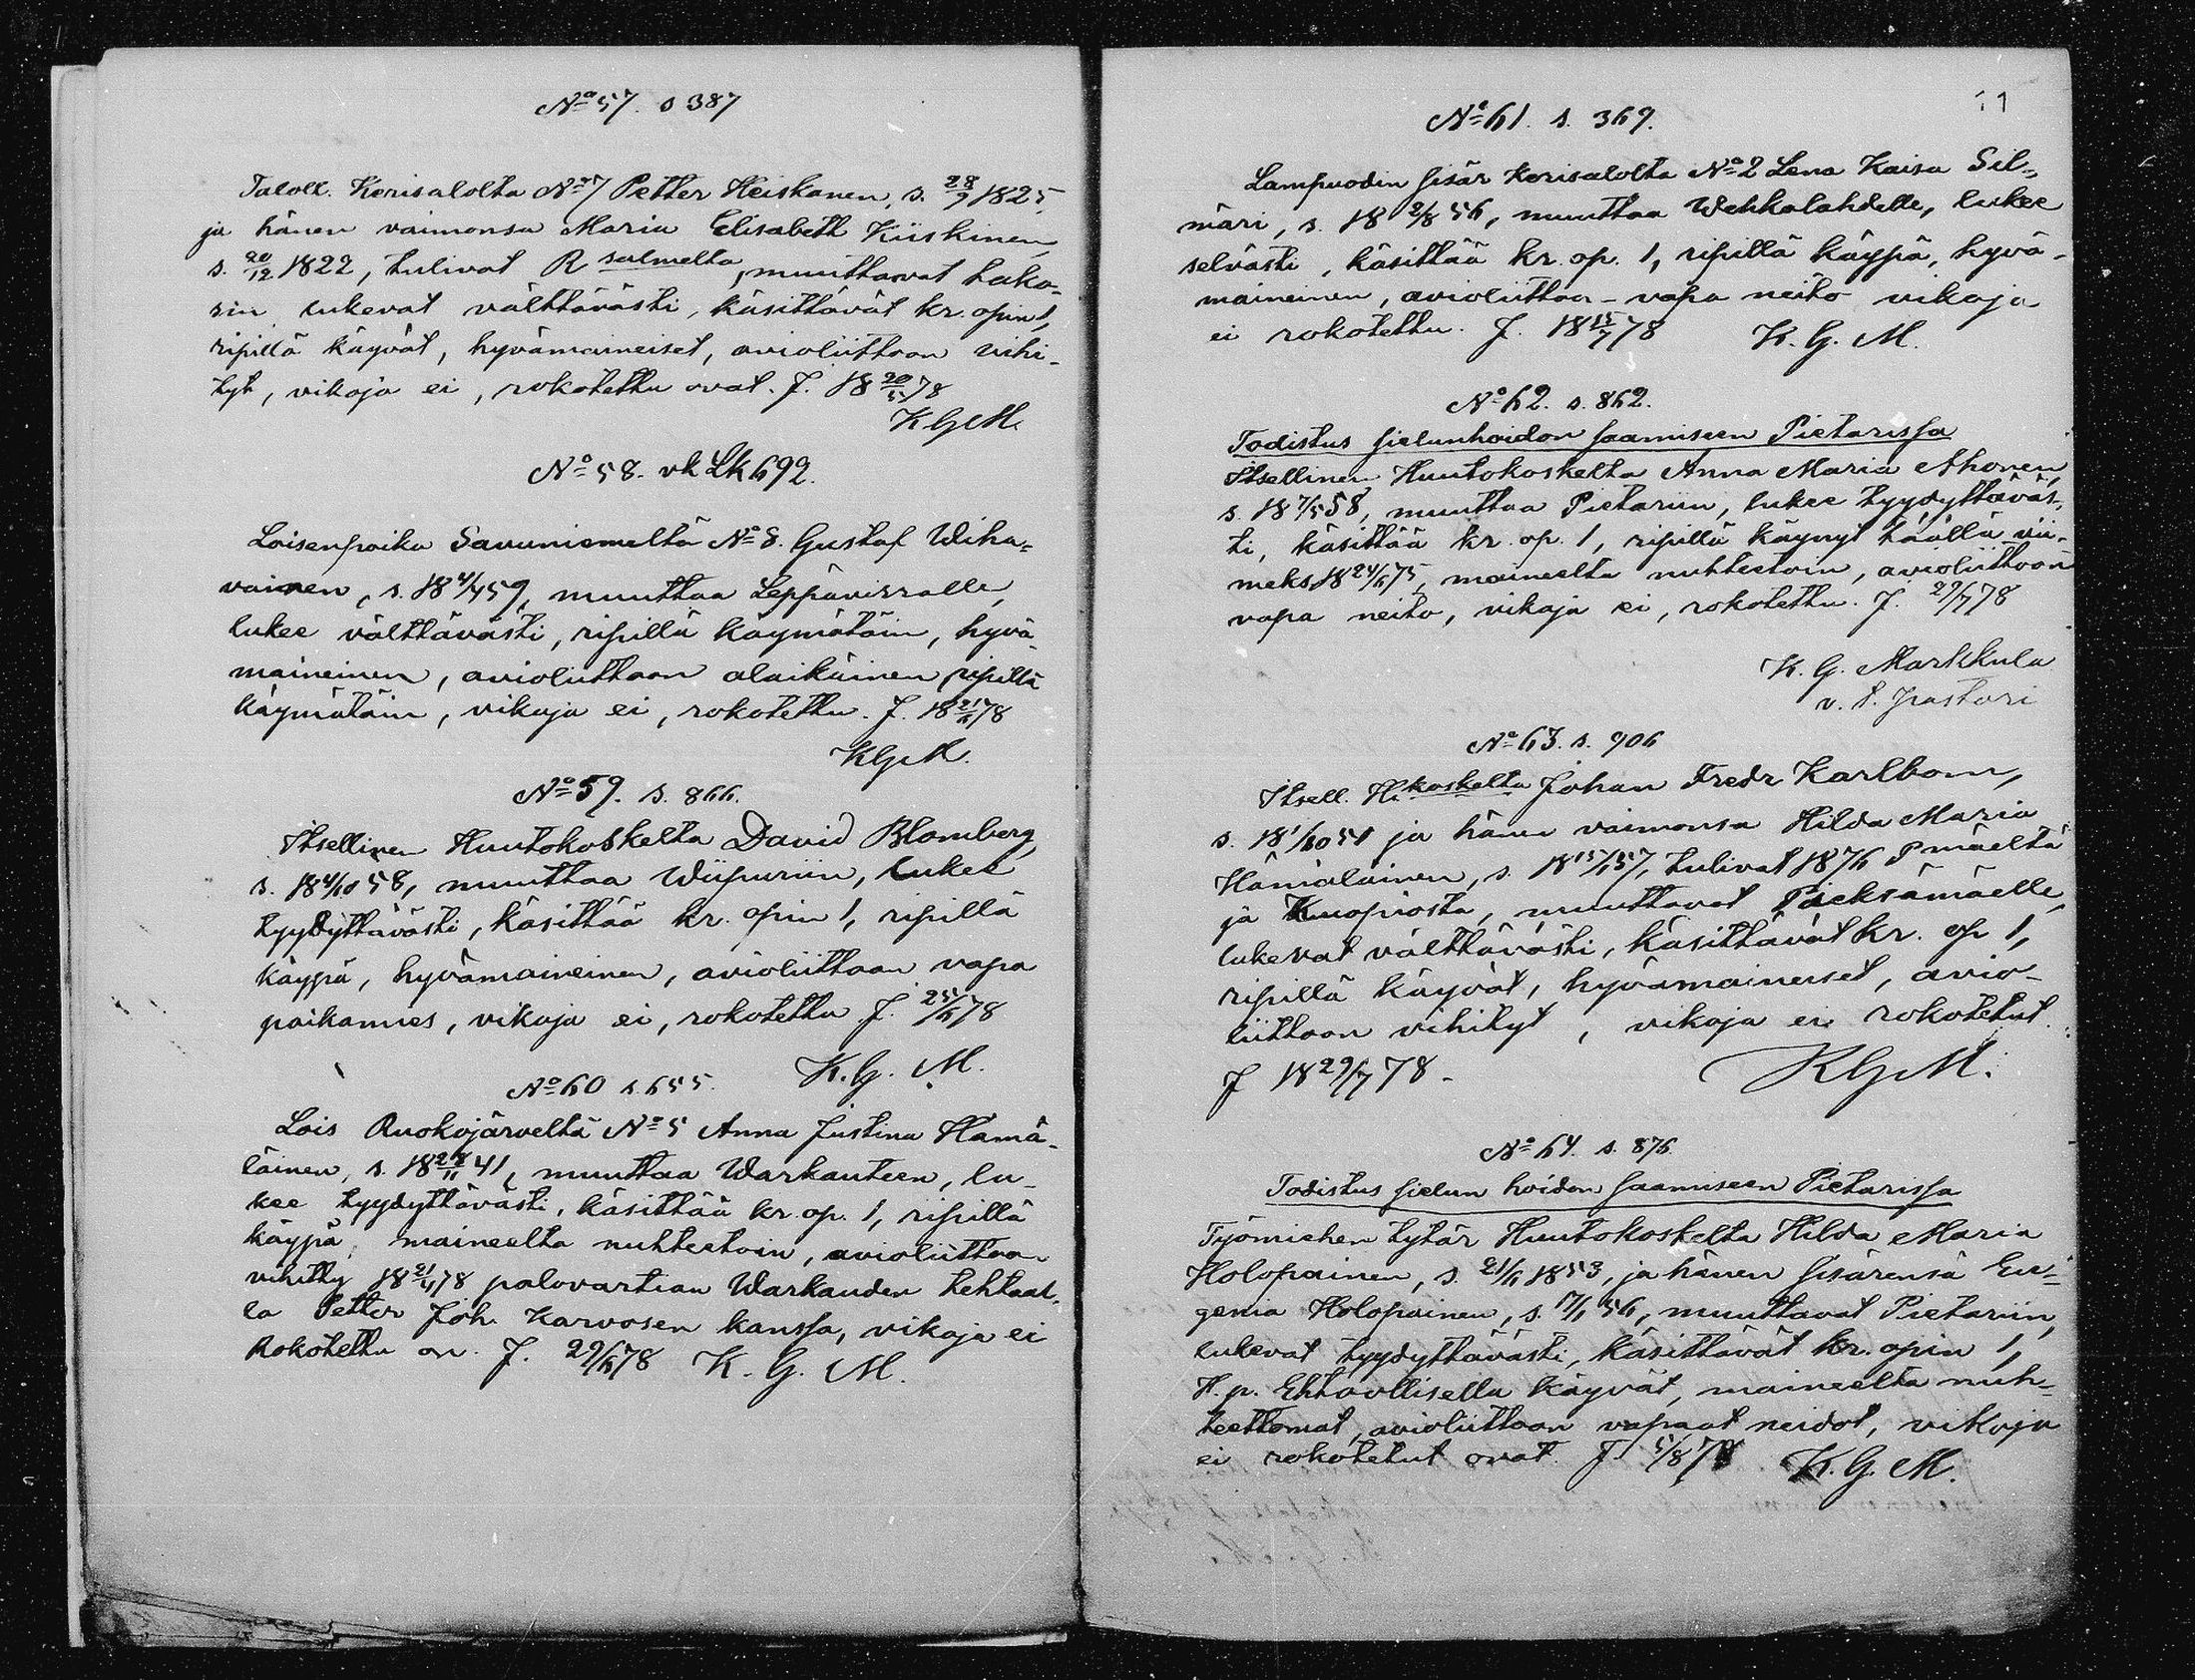 No 57. s 387
Taloll. Kerisalolta No 7 Petter Heiskanen, s. 28/9 1825,
ja hänen vaimonsa Maria Elisabeth Kiiskinen,
s. 20/12 1822, tulivat R salmelta, muuttavat taka-
sin lukevat välttävästi, käsittävät kr. opin 1,
ripillä käyvät, hyvämaineiset, avioliittoon vihi-
tyt, vikoja ei, rokotettu ovat. J. 18 20/5 78
KGM.
No 58. vk Lk 692.
Loisenpoika Savuniemeltä No 8. Gustaf Wiha-
vainen, s. 18 4/4 59, muuttaa Leppävirralle,
lukee välttävästi, ripillä käymätöin, hyvä-
maineinen, avioliittoon alaikäinen ripillä
käymätöin, vikoja ei, rokotettu. J. 18 21/6 78
KGM.
No 59. s. 866.
Itsellinen Huutokoskelta David Blomberg,
s. 18 4/10 58, muuttaa Wiipuriin, lukee
tyydyttävästi, käsittää kr. opin 1, ripillä
käypä, hyvämaineinen, avioliittoon vapa
poikamies, vikoja ei, rokotettu J. 25/6 78
K. G. M.
No 60 s. 655.
Lois Ruokojärveltä No 5 Anna Justina Hämä-
läinen, s. 18 28/11 41, muuttaa Warkauteen, lu-
kee tyydyttävästi, käsittää kr. op. 1, ripillä
käypä, maineelta nuhtetoin, avioliittoon
vihitty 18 21/4 78 palovartian Warkauden tehtaal-
la Petter Joh. Karvosen kanssa, vikoja ei
Rokotettu on. J. 29/6 78 K. G. M.
11
No 61. s. 369.
Lampuodin sisär Kerisalolta No 2 Lena Kaisa Sil-
märi, s. 18 2/8 56, muuttaa Wehkalahdelle, lukee
selvästi, käsittää kr. op. 1, ripillä käypä, hyvä-
maineinen, avioliittoon - vapa neito vikoja
ei rokotettu. J. 18 15/7 78 K. G. M.
No 62. s. 862.
Todistus sielunhoidon saamiseen Pietarissa
Itsellinen Huutokoskelta Anna Maria Ahonen,
s. 18 7/5 58, muuttaa Pietariin, lukee tyydyttäväs-
ti, käsittää kr. op. 1, ripillä käynyt täällä vii-
meks 18 24/6 75, maineelta nuhtetoin, avioliittoon
vapa neito, vikoja ei, rokotettu. J. 29/7 78
K. G. Markkula
v. t. pastori
No 63. s. 906
Itsell. H. koskelta Johan Fredr Karlbom,
s. 18 1/10 51 ja hänen vaimonsa Hilda Maria
Hämäläinen, s. 18 15/1 57, tulivat 1876 P mäeltä
ja Kuopiosta, muuttavat Pieksämäelle,
lukevat välttävästi, käsittävät kr. op 1,
ripillä käyvät, hyvämaineiset, avio-
liittoon vihityt, vikoja ei rokotetut.
J 18 29/7 78. KGM.
No 64. s. 876.
Todistus sielun hoidon saamiseen Pietarissa
Työmiehen tytär Huutokoskelta Hilda Maria
Holopainen, s. 21/6 1853, ja hänen sisärensä Eu-
genia Holopainen, s. 17/1 56, muuttavat Pietariin,
lukevat tyydyttävästi, käsittävät kr. opin 1,
H. p. Ehtoollisella käyvät, maineelta nuh-
teettomat, avioliittoon vapaat neidot, vikoja
ei rokotetut ovat. J 5/8 78 K. G. M.